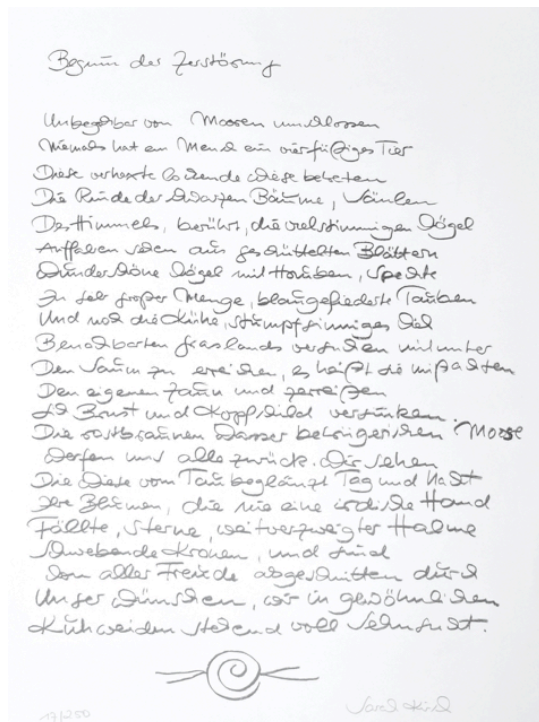 Beginn der Zerstörung
Unbegehbar von Mooren umschlossen
Niemals hat ein Mensch ein vierfüßiges Tier
Diese verhexte lockende Wiese betreten
Die Runde der schwarzen Bäume, Säulen
Des Himmels, berührt, die vielstimmigen Vögel
Auffahren sehen aus geschüttelten Blättern
Wunderschöne Vögel mit Hauben, Spechte
In sehr großer Menge, blaugefiederte Tauben
Und noch die Kühe, stumpfsinniges Vieh
Benachbarten Graslands versuchen mitunter
Den Saum zu erreichen, es heißt sie mißachten
Den eigenen Zaun und zerreißen
Sich Brust und Kopfschild versunken.
Die rostbraunen Wasser betrügerischen Moose
Werfen uns alle zurück. Wir sehen
Die Wiese vom Tau beglänzt Tag und Nacht
Ihre Blumen, die nie eine irdische Hand
Fällte, Sterne, weitverzweigter Halme
Schwebende Kronen, und sind
Von aller Freude abgeschnitten durch
Unser Wünschen, wir in gewöhnlichen
Kuhweiden stehend voll Sehnsucht.
17/250
Sarah Kirsch